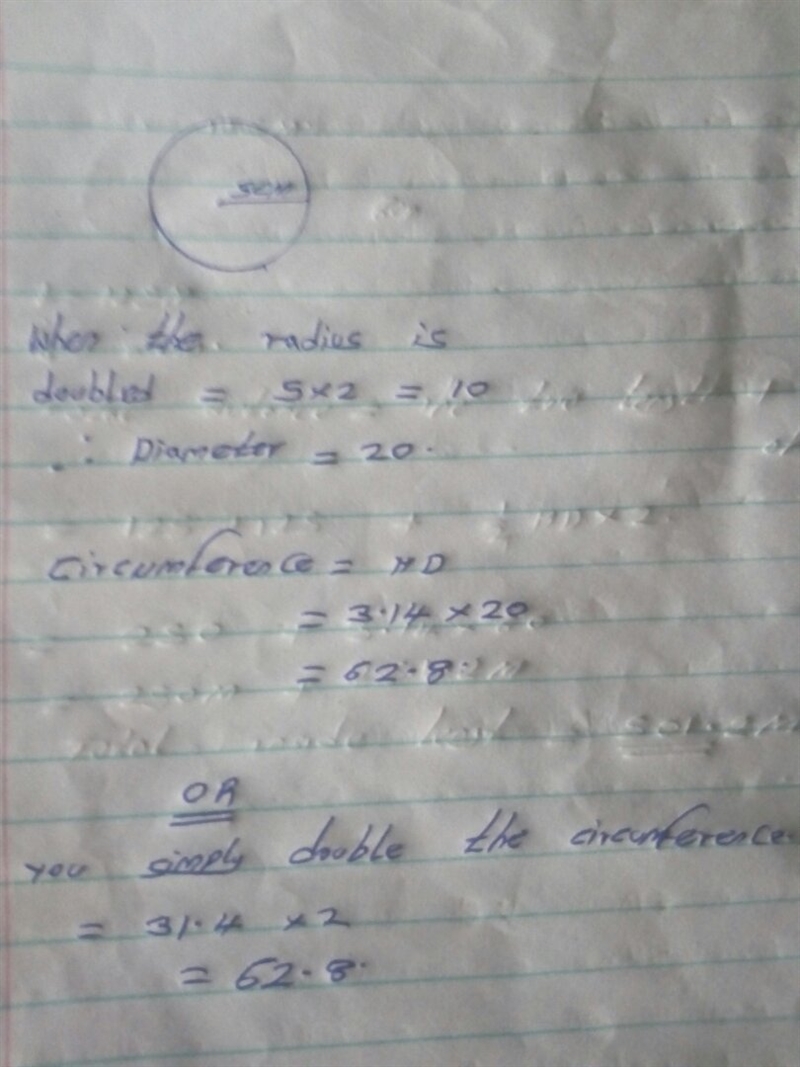 5cm
When the radius is
doubled = 5×2 = 10
∴ Diameter = 20.
Circumference = πD
= 3.14 × 20
= 62.8.
OR
you simply double the circumference.
= 31.4 × 2
= 62.8.